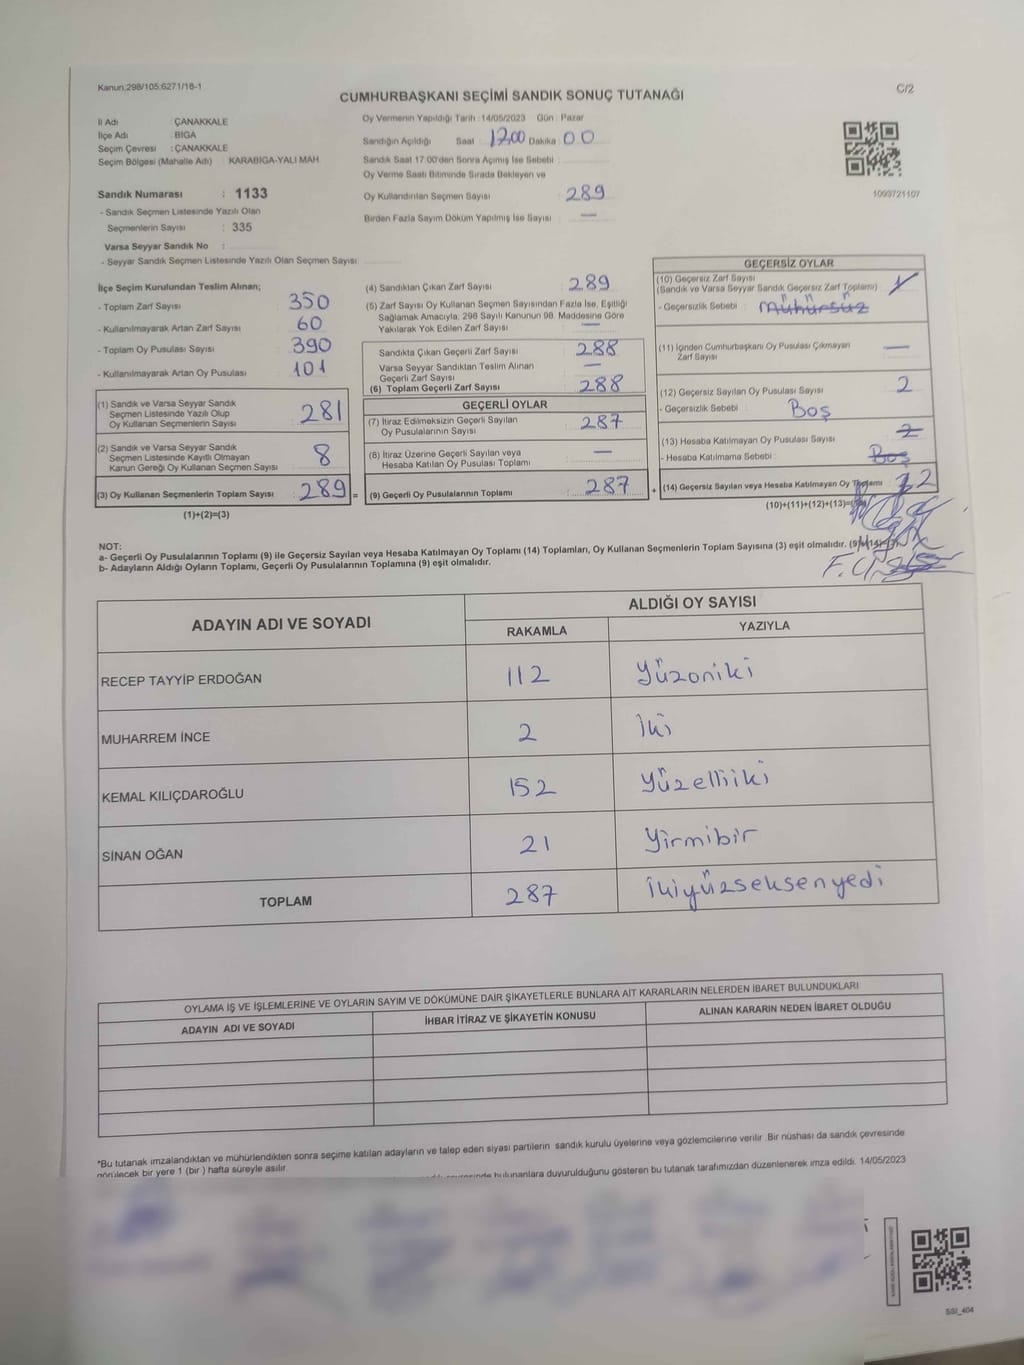 Kanun,298/105:6271/18-1
C/2
CUMHURBAŞKANI SEÇİMİ SANDIK SONUÇ TUTANAĞI
İl Adı : ÇANAKKALE
İlçe Adı : BIGA
Seçim Çevresi : ÇANAKKALE
Seçim Bölgesi (Mahalle Adı) : KARABIGA-YALI MAH
Sandık Numarası : 1133
- Sandık Seçmen Listesinde Yazılı Olan
Seçmenlerin Sayısı : 335
Varsa Seyyar Sandık No :
- Seyyar Sandık Seçmen Listesinde Yazılı Olan Seçmen Sayısı:
Oy Vermenin Yapıldığı Tarih :14/05/2023 Gün : Pazar
Sandığın Açıldığı Saat 17.00 Dakika : 00
Sandık Saat 17:00'den Sonra Açmış İse Sebebi :
Oy Verme Saati Bitiminde Sırada Bekleyen ve
Oy Kullandırılan Seçmen Sayısı : 289
Birden Fazla Sayım Döküm Yapılmış İse Sayısı : —
1093721107
İlçe Seçim Kurulundan Teslim Alınan;
- Toplam Zarf Sayısı : 350
- Kullanılmayarak Artan Zarf Sayısı : 60
- Toplam Oy Pusulası Sayısı : 390
- Kullanılmayarak Artan Oy Pusulası : 101
(1) Sandık ve Varsa Seyyar Sandık
Seçmen Listesinde Yazılı Olup
Oy Kullanan Seçmenlerin Sayısı : 281
(2) Sandık ve Varsa Seyyar Sandık
Seçmen Listesinde Kayıtlı Olmayan
Kanun Gereği Oy Kullanan Seçmen Sayısı : 8
(3) Oy Kullanan Seçmenlerin Toplam Sayısı : 289 =
(1)+(2)=(3)
(4) Sandıktan Çıkan Zarf Sayısı : 289
(5) Zarf Sayısı Oy Kullanan Seçmen Sayısından Fazla İse, Eşitliği
Sağlamak Amacıyla; 298 Sayılı Kanunun 98. Maddesine Göre
Yakılarak Yok Edilen Zarf Sayısı : —
Sandıkta Çıkan Geçerli Zarf Sayısı : 288
Varsa Seyyar Sandıktan Teslim Alınan
Geçerli Zarf Sayısı : —
(6) Toplam Geçerli Zarf Sayısı : 288
GEÇERLİ OYLAR
(7) İtiraz Edilmeksizin Geçerli Sayılan
Oy Pusulalarının Sayısı : 287
(8) İtiraz Üzerine Geçerli Sayılan veya
Hesaba Katılan Oy Pusulası Toplamı : —
(9) Geçerli Oy Pusulalarının Toplamı : 287 +
GEÇERSİZ OYLAR
(10) Geçersiz Zarf Sayısı
(Sandık ve Varsa Seyyar Sandık Geçersiz Zarf Toplamı)
- Geçersizlik Sebebi : Mühürsüz
(11) İçinden Cumhurbaşkanı Oy Pusulası Çıkmayan
Zarf Sayısı : —
(12) Geçersiz Sayılan Oy Pusulası Sayısı : 2
- Geçersizlik Sebebi : Boş
(13) Hesaba Katılmayan Oy Pusulası Sayısı : 2
- Hesaba Katılmama Sebebi : Boş
(14) Geçersiz Sayılan veya Hesaba Katılmayan Oy Toplamı : 2
(10)+(11)+(12)+(13)=
NOT:
a- Geçerli Oy Pusulalarının Toplamı (9) ile Geçersiz Sayılan veya Hesaba Katılmayan Oy Toplamı (14) Toplamları, Oy Kullanan Seçmenlerin Toplam Sayısına (3) eşit olmalıdır.
b- Adayların Aldığı Oyların Toplamı, Geçerli Oy Pusulalarının Toplamına (9) eşit olmalıdır.
ADAYIN ADI VE SOYADI
ALDIĞI OY SAYISI
RAKAMLA YAZIYLA
RECEP TAYYİP ERDOĞAN 112 yüzoniki
MUHARREM İNCE 2 iki
KEMAL KILIÇDAROĞLU 152 yüzelliiki
SİNAN OĞAN 21 yirmibir
TOPLAM 287 ikiyüzseksenyedi
OYLAMA İŞ VE İŞLEMLERİNE VE OYLARIN SAYIM VE DÖKÜMÜNE DAİR ŞİKAYETLERLE BUNLARA AİT KARARLARIN NELERDEN İBARET BULUNDUKLARI
ADAYIN ADI VE SOYADI İHBAR İTİRAZ VE ŞİKAYETİN KONUSU ALINAN KARARIN NEDEN İBARET OLDUĞU
*Bu tutanak imzalandıktan ve mühürlendikten sonra seçime katılan adayların ve talep eden siyasi partilerin sandık kurulu üyelerine veya gözlemcilerine verilir. Bir nüshası da sandık çevresinde
görülecek bir yere 1 (bir ) hafta süreyle asılır.
bulunanlara duyurulduğunu gösteren bu tutanak tarafımızdan düzenlenerek imza edildi. 14/05/2023
SSI_404